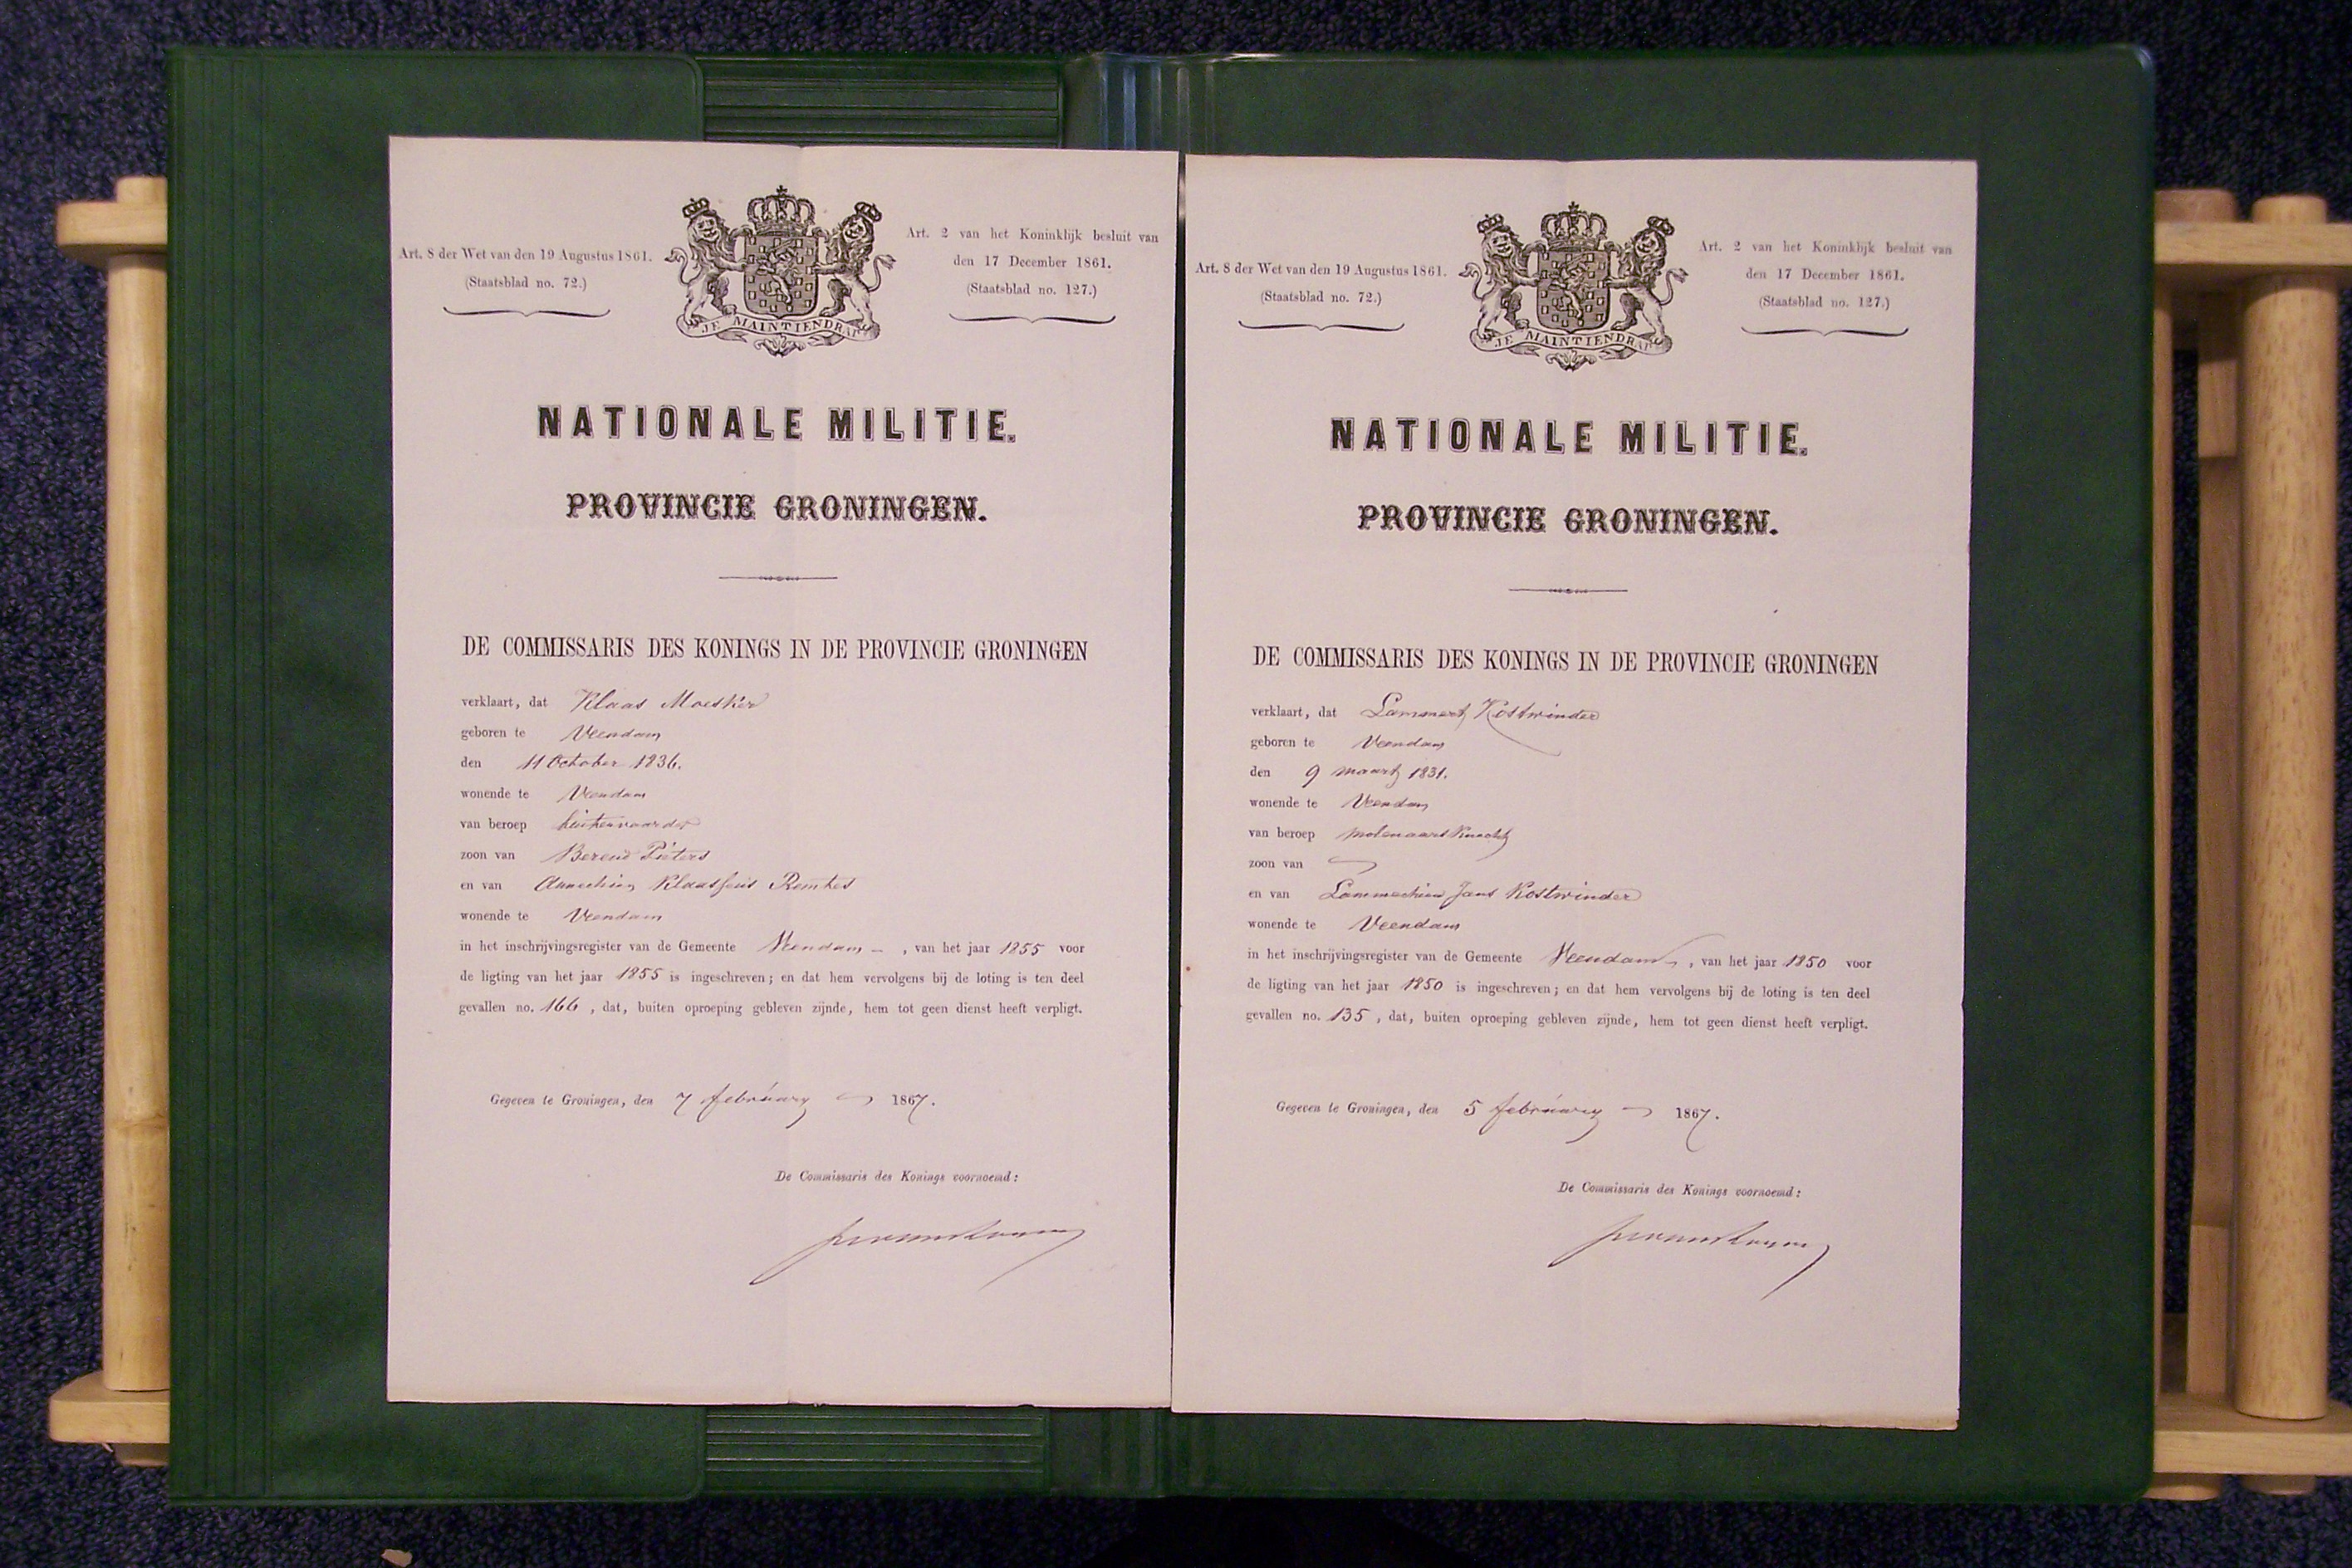 Art. 8 der Wet van den 19 Augustus 1861.
(Staatsblad no. 72.)
JE MAINTIENDRAI
Art. 2 van het Koninklijk besluit van
den 17 December 1861.
(Staatsblad no. 127.)
NATIONALE MILITIE.
PROVINCIE GRONINGEN.
DE COMMISSARIS DES KONINGS IN DE PROVINCIE GRONINGEN
verklaart, dat Klaas Moesker
geboren te Veendam
den 11 October 1836.
wonende te Veendam
van beroep buitenvaarder
zoon van Berend Pieters
en van Annechien Klaassens Remkes
wonende te Veendam
in het inschrijvingsregister van de Gemeente Veendam – , van het jaar 1855 voor
de ligting van het jaar 1855 is ingeschreven; en dat hem vervolgens bij de loting is ten deel
gevallen no. 166 , dat, buiten oproeping gebleven zijnde, hem tot geen dienst heeft verpligt.
Gegeven te Groningen, den 7 february 1867.
De Commissaris des Konings voornoemd:
Art. 8 der Wet van den 19 Augustus 1861.
(Staatsblad no. 72.)
JE MAINTIENDRAI
Art. 2 van het Koninklijk besluit van
den 17 December 1861.
(Staatsblad no. 127.)
NATIONALE MILITIE.
PROVINCIE GRONINGEN.
DE COMMISSARIS DES KONINGS IN DE PROVINCIE GRONINGEN
verklaart, dat Lammert Kostwinder
geboren te Veendam
den 9 maart 1831.
wonende te Veendam
van beroep molenaarsknecht
zoon van
en van Lammechien Jans Kostwinder
wonende te Veendam
in het inschrijvingsregister van de Gemeente Veendam , van het jaar 1850 voor
de ligting van het jaar 1850 is ingeschreven; en dat hem vervolgens bij de loting is ten deel
gevallen no. 135 , dat, buiten oproeping gebleven zijnde, hem tot geen dienst heeft verpligt.
Gegeven te Groningen, den 5 february 1867.
De Commissaris des Konings voornoemd: